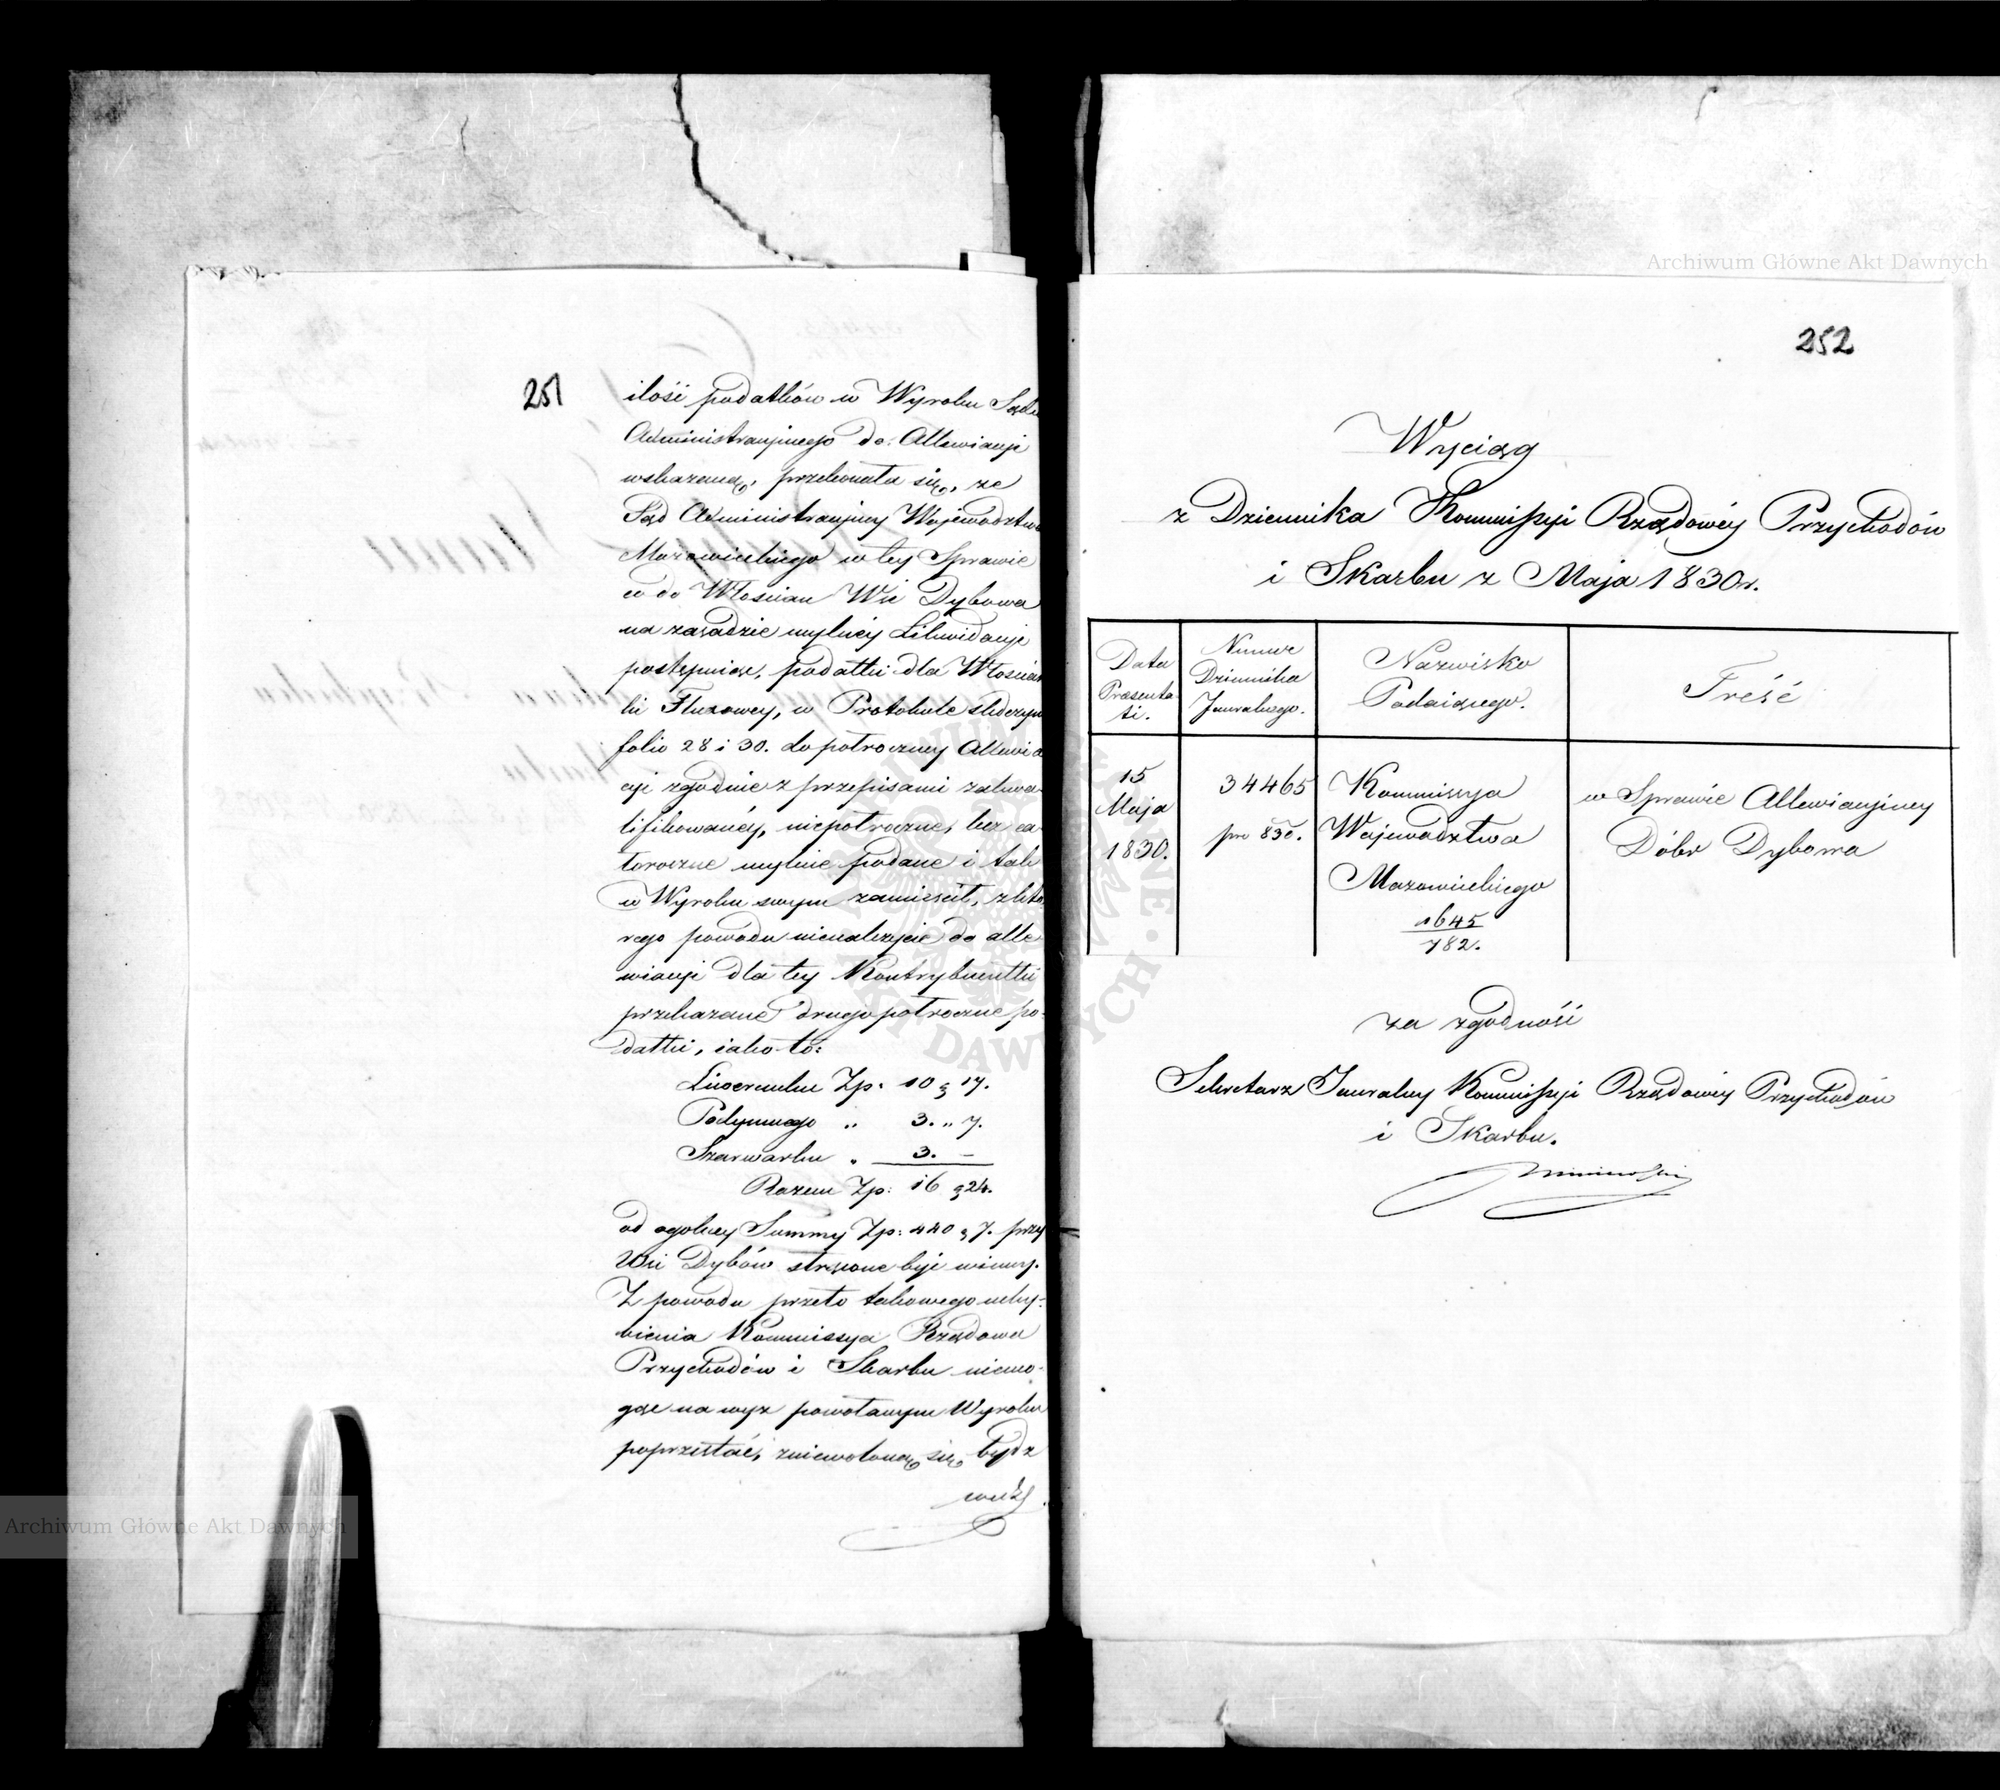 251
ilości podatków w Wyroku Sądu
Administracyjnego do Allewiacyi
wskazaną, przekonała się, że
Sąd Administracyjny Województwa
Mazowieckiego w tey Sprawie
co do Włościan Wsi Dybowa
na zasadzie mylnéy Likwidacyi
postępuiąc, podatki dla Włościan
ki Fluxowey, w Protokule śledczym
folio 28 i 30. do półroczney Allewia
cyi zgodnie z przepisami zakwa-
lifikowanéy, niepółroczne, lecz ca
łoroczne mylnie podane i tak
w Wyroku swym zamieścił, z któ
rego powodu nienależycie do alle
wiacyi dla tey Kontrybuentki
przekazane drugopółroczne po-
datki, iako to:
Liwerunku Zp. 10 g 17.
Podymnego „ 3. „ 7.
Szarwarku „ 3. –
Razem Zp: 16 g 24.
od ogólney Summy Zp: 440 g 7. przy
Wsi Dybów strącone być winny.
Z powodu przeto takowego uchy-
bienia Kommissya Rządowa
Przychodów i Skarbu niemo-
gąc na wyż powołanym Wyroku
poprzestać, zniewoloną się bydź
widzi
252
Wyciąg
z Dziennika Kommissyi Rządowéy Przychodów
i Skarbu z Maja 1830 r.
Data Præsenta ti.
Numer Dziennika Jeneralnego.
Nazwisko Podaiącego.
Treść
15 Maja 1830.
34465 pro 830.
Kommissya Województwa Mazowieckiego 1645/782.
w Sprawie Allewiacyiney Dóbr Dybowa
za zgodność
Sekretarz Jeneralny Kommissyi Rządowéy Przychodów
i Skarbu.
Archiwum Główne Akt Dawnych
Archiwum Główne Akt Dawnych